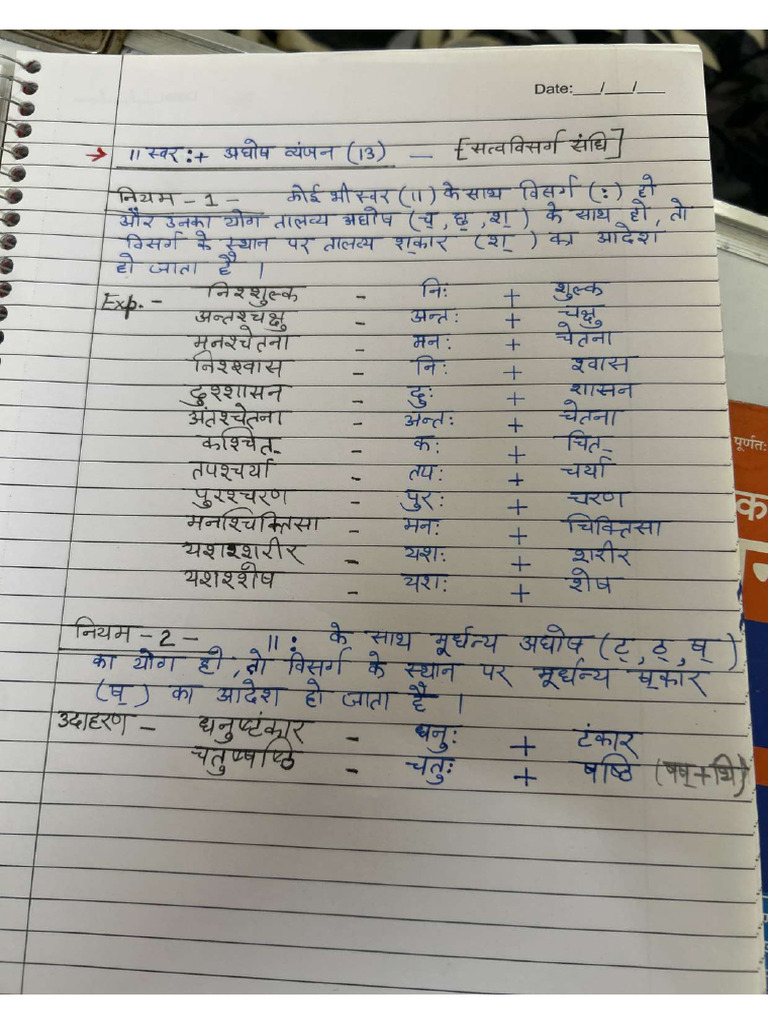 Date:__/__/__
→ ॥ स्वर : + अघोष व्यंजन (13) — [सत्वविसर्ग संधि]
नियम - 1 - कोई भी स्वर (11) के साथ विसर्ग (:) हो
और उनका योग तालव्य अघोष (च्, छ्, श्) के साथ हो, तो
विसर्ग के स्थान पर तालव्य श्कार (श्) का आदेश
हो जाता है ।
Exp. - निश्शुल्क - निः + शुल्क
अन्तश्चक्षु - अन्तः + चक्षु
मनश्चेतना - मनः + चेतना
निश्श्वास - निः + श्वास
दुश्शासन - दुः + शासन
अंतश्चेतना - अन्तः + चेतना
कश्चित् - कः + चित्
तपश्चर्या - तपः + चर्या
पुरश्चरण - पुरः + चरण
मनश्चिक्तिसा - मनः + चिक्तिसा
यशश्शरीर - यशः + शरीर
यशश्शेष - यशः + शेष
नियम - 2 - ॥ : के साथ मूर्धन्य अघोष (ट्, ठ्, ष्)
का योग हो, तो विसर्ग के स्थान पर मूर्धन्य ष्कार
(ष्) का आदेश हो जाता है ।
उदाहरण - धनुष्टंकार - धनुः + टंकार
चतुष्षष्ठि - चतुः + षष्ठि (षष् + थि)
पूर्णतः
क